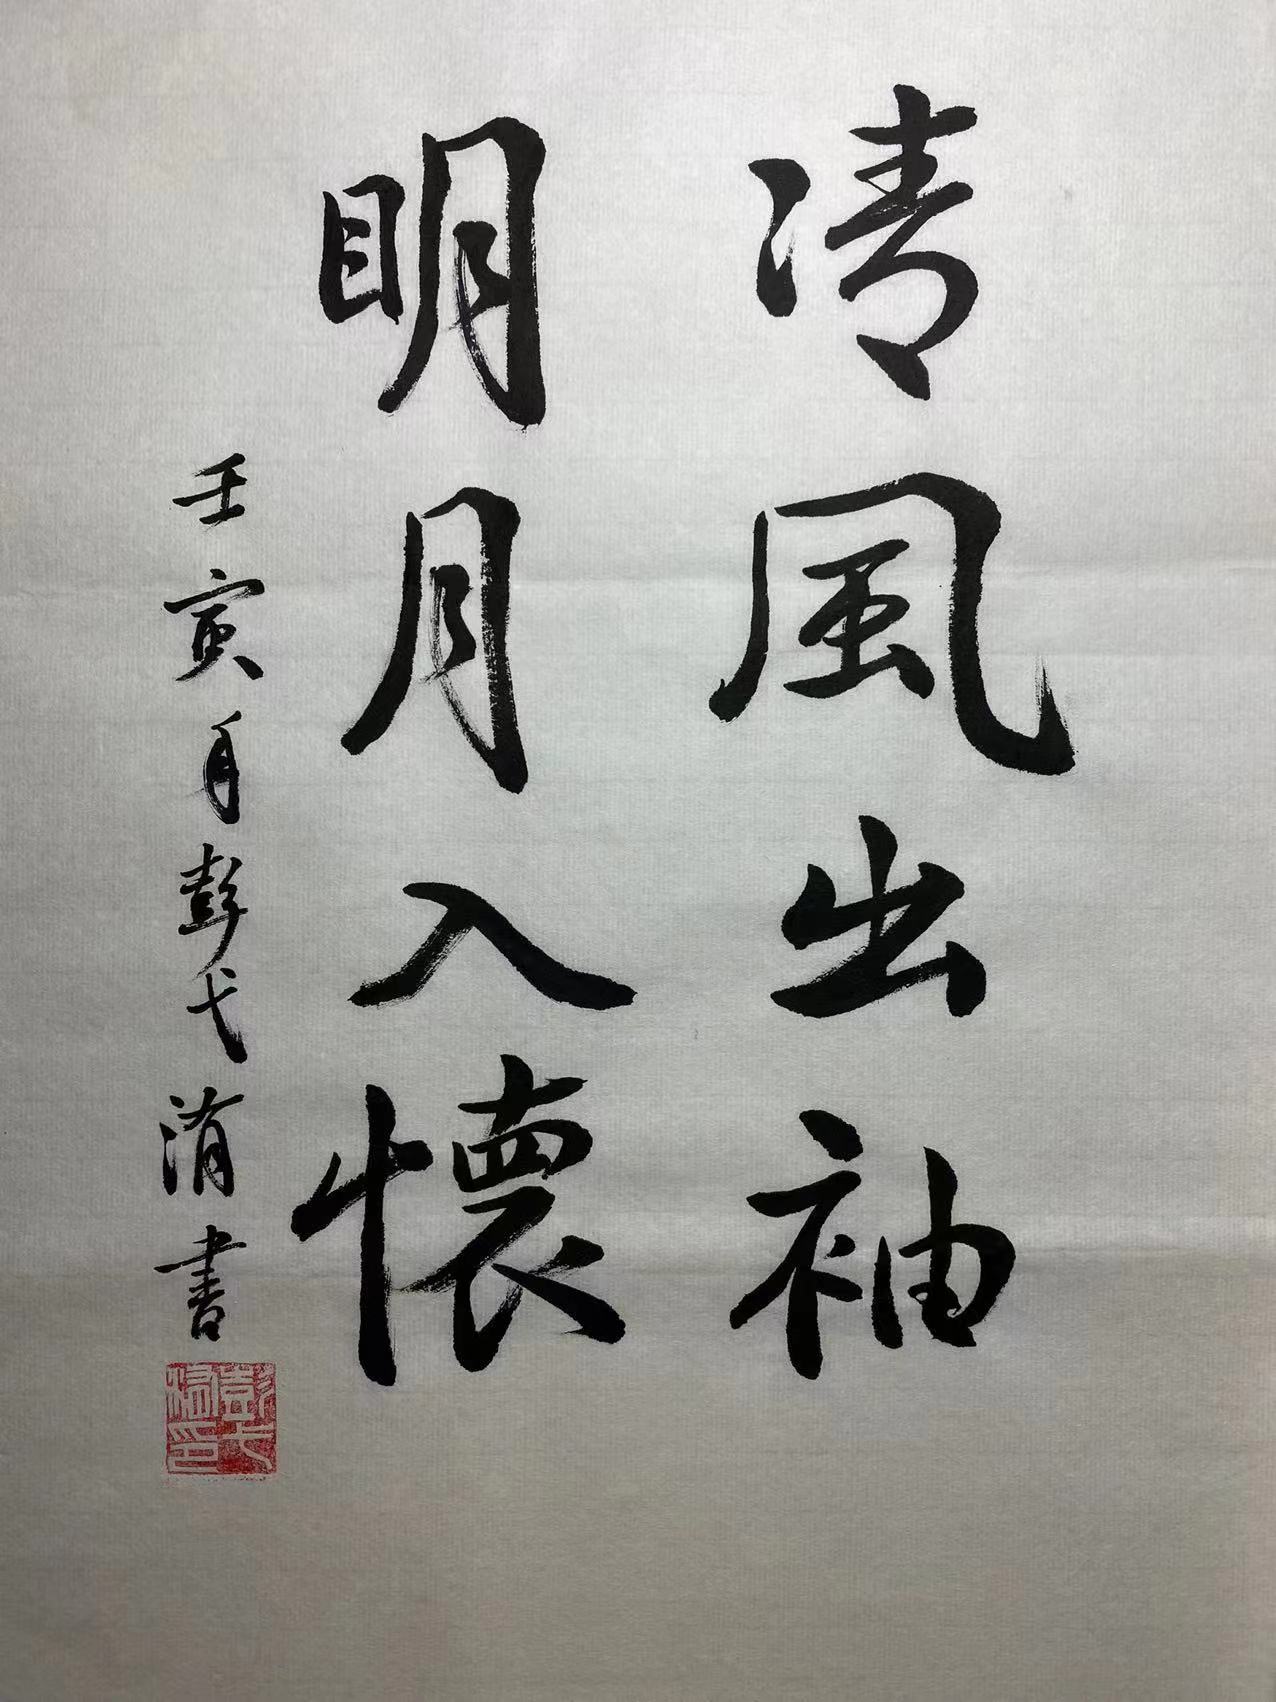 清風出袖
明月入懷
壬寅年彭弋書